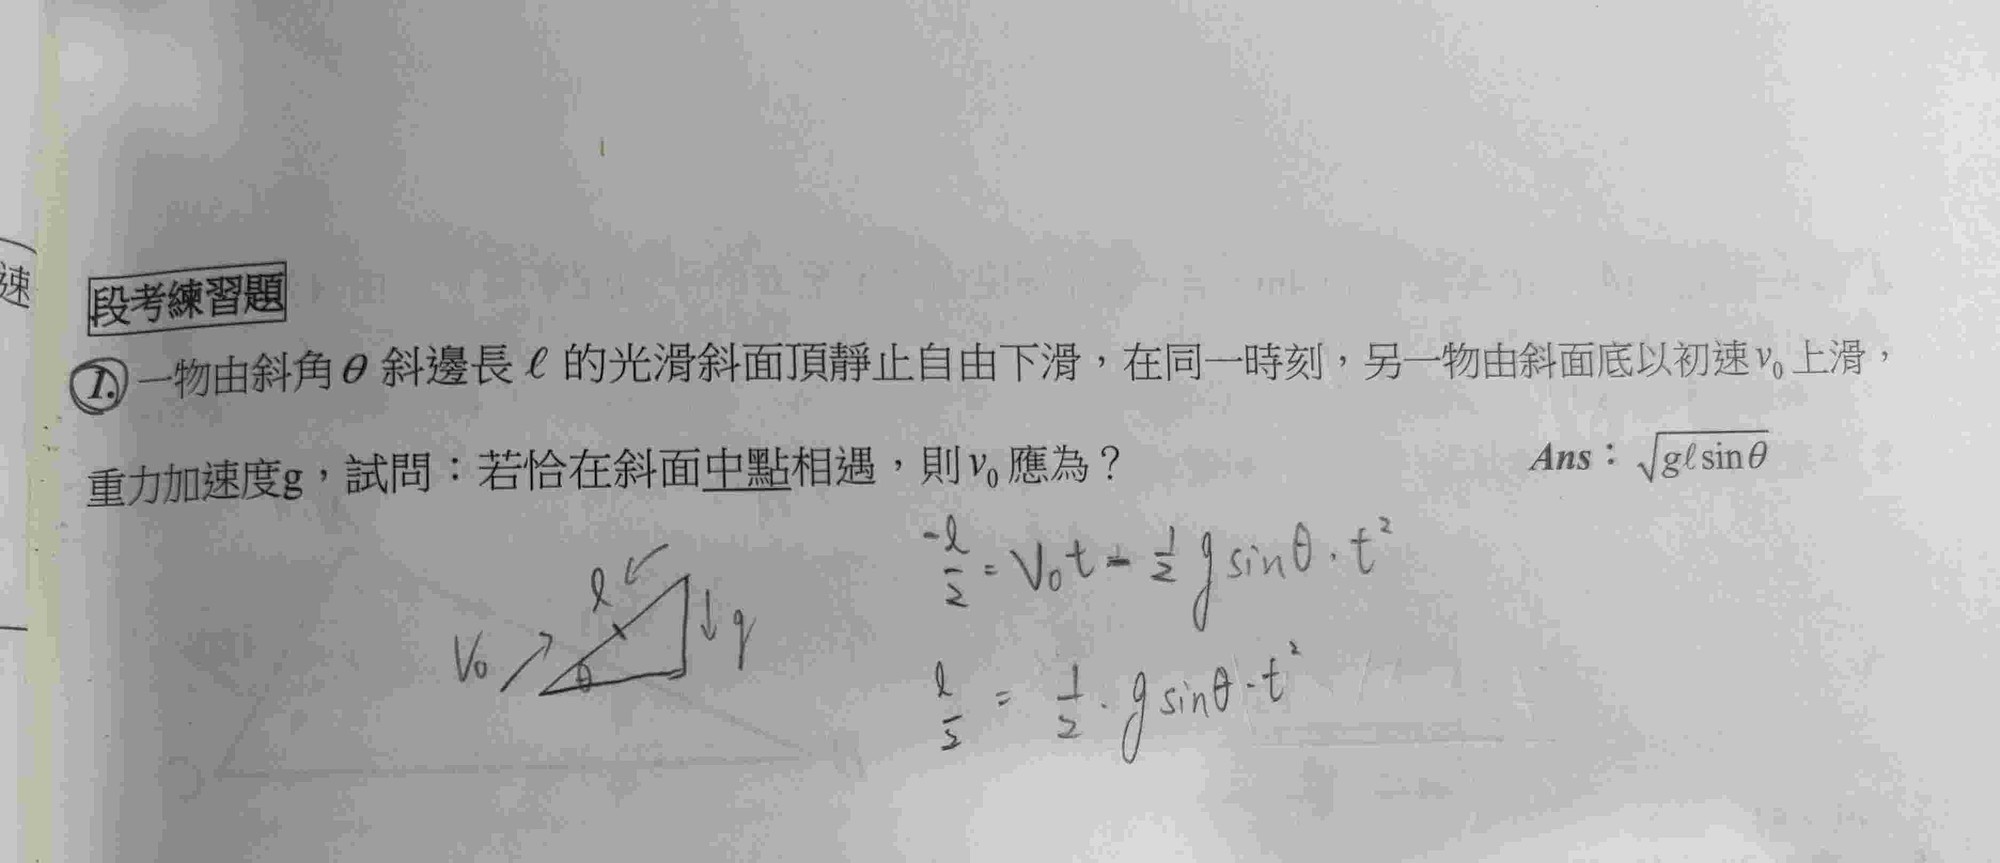 速
段考練習題
1. 一物由斜角θ斜邊長ℓ的光滑斜面頂靜止自由下滑，在同一時刻，另一物由斜面底以初速v₀上滑，
重力加速度g，試問：若恰在斜面中點相遇，則v₀應為？ Ans：√(gℓsinθ)
-ℓ/2 = V₀t - 1/2 g sinθ · t²
ℓ
g
V₀
θ
ℓ/2 = 1/2 · g sinθ · t²